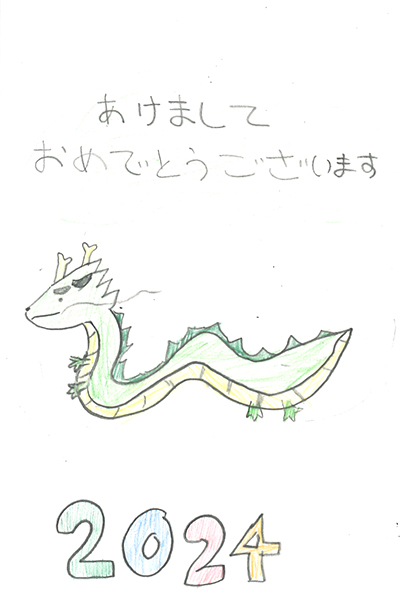 あけまして
おめでとうございます
2024